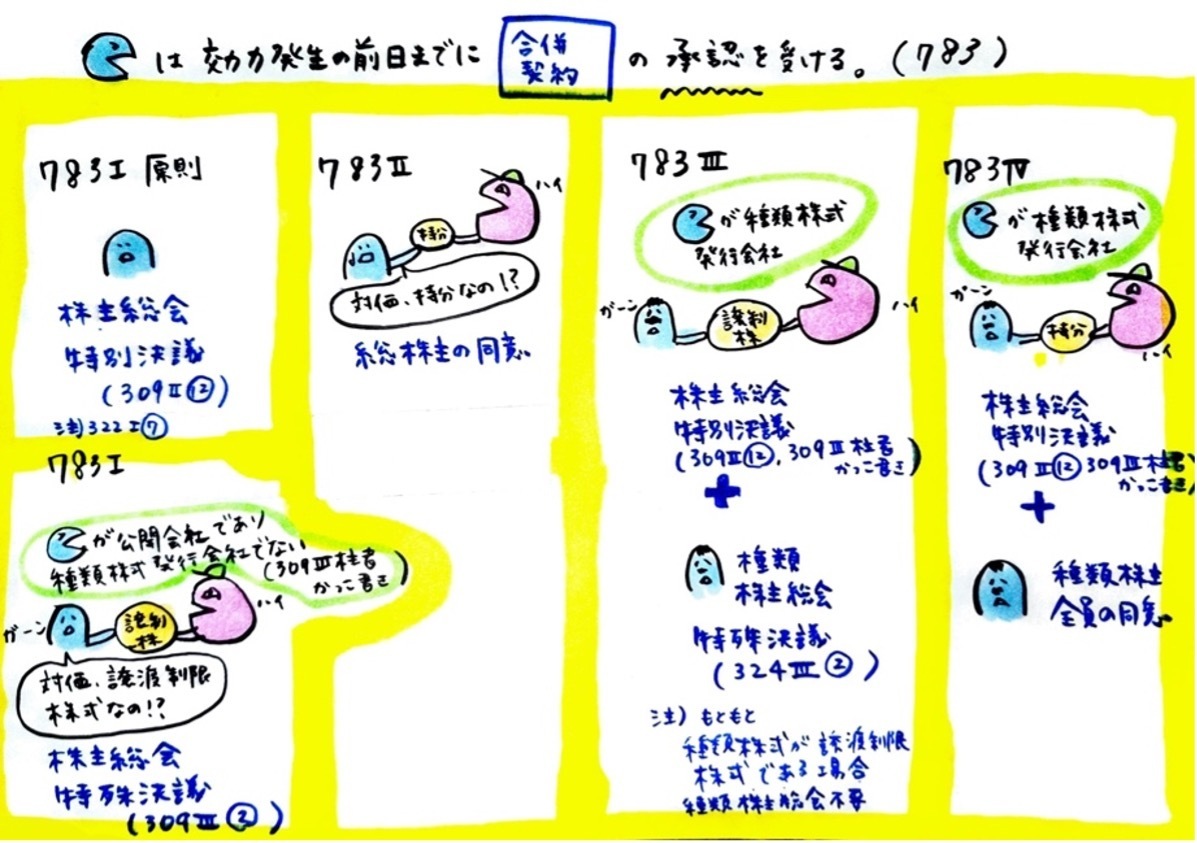 は 効力発生の前日までに 合併契約 の 承認を受ける。(783)
783Ⅰ 原則
株主総会
特別決議
(309Ⅱ⑫)
注)322Ⅰ⑦
783Ⅰ
が公開会社であり
種類株式発行会社でない
(309Ⅲ柱書
かっこ書き)
ガーン
譲制
株
ハイ
対価、譲渡制限
株式なの!?
株主総会
特殊決議
(309Ⅲ②)
783Ⅱ
持分
ハイ
対価、持分なの!?
総株主の同意
783Ⅲ
が種類株式
発行会社
ガーン
譲制
株
ハイ
株主総会
特別決議
(309Ⅱ⑫, 309Ⅲ柱書
かっこ書き)
+
種類
株主総会
特殊決議
(324Ⅲ②)
注) もともと
種類株式が譲渡制限
株式である場合
種類株主総会不要
783Ⅳ
が種類株式
発行会社
ガーン
持分
ハイ
株主総会
特別決議
(309Ⅱ⑫ 309Ⅲ柱書
かっこ書き)
+
種類株主
全員の同意